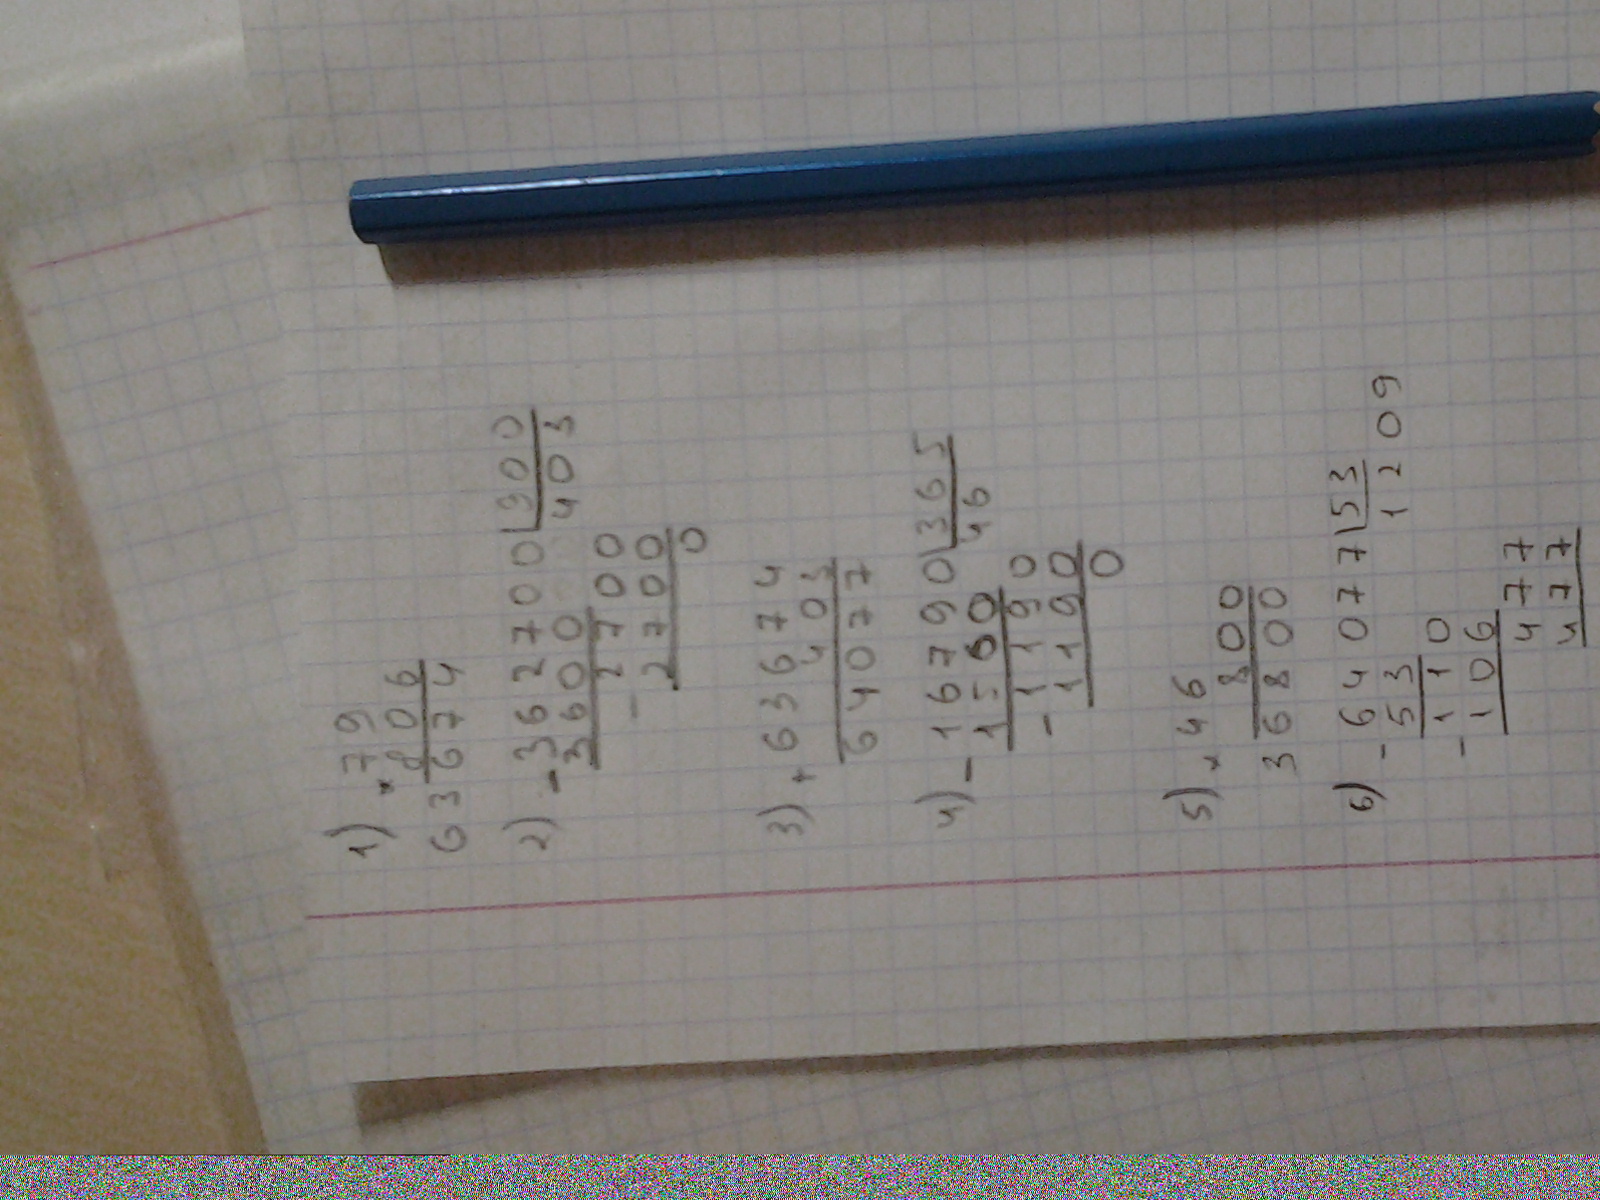 1) 79
× 806
63674
2) - 362700 | 900
3600 403
- 2700
2700
0
3) + 63674
403
64077
4) - 16790 | 365
1560 46
- 1190
1190
0
5) × 46
800
36800
6) - 64077 | 53
53 1209
- 110
106
477
477